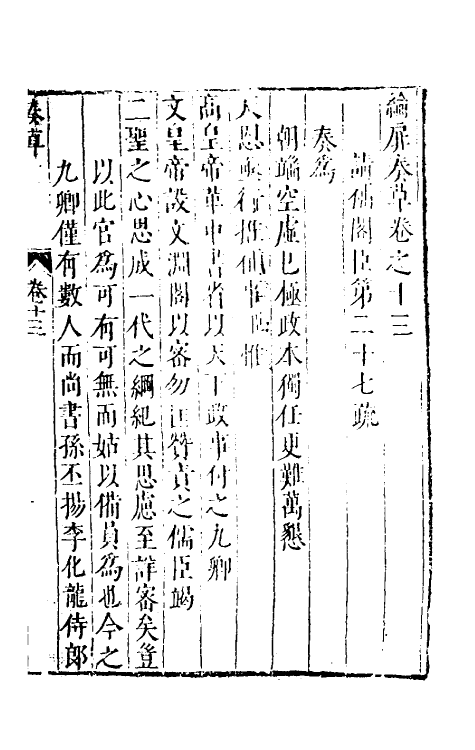 綸扉奏草卷之十三
請補閣臣第二十七疏
奏為
朝端空虛已極政本獨任更難萬懇
天恩亟行推補事臣惟
高皇帝革中書省以天下政事付之九卿
文皇帝設文淵閣以審勿匡贊責之儒臣竭
二聖之心思成一代之綱紀其思慮至詳審矣豈
以此官為可有可無而姑以備員為也今之
九卿僅有數人而尚書孫丕揚李化龍侍郎
奏草
卷十三